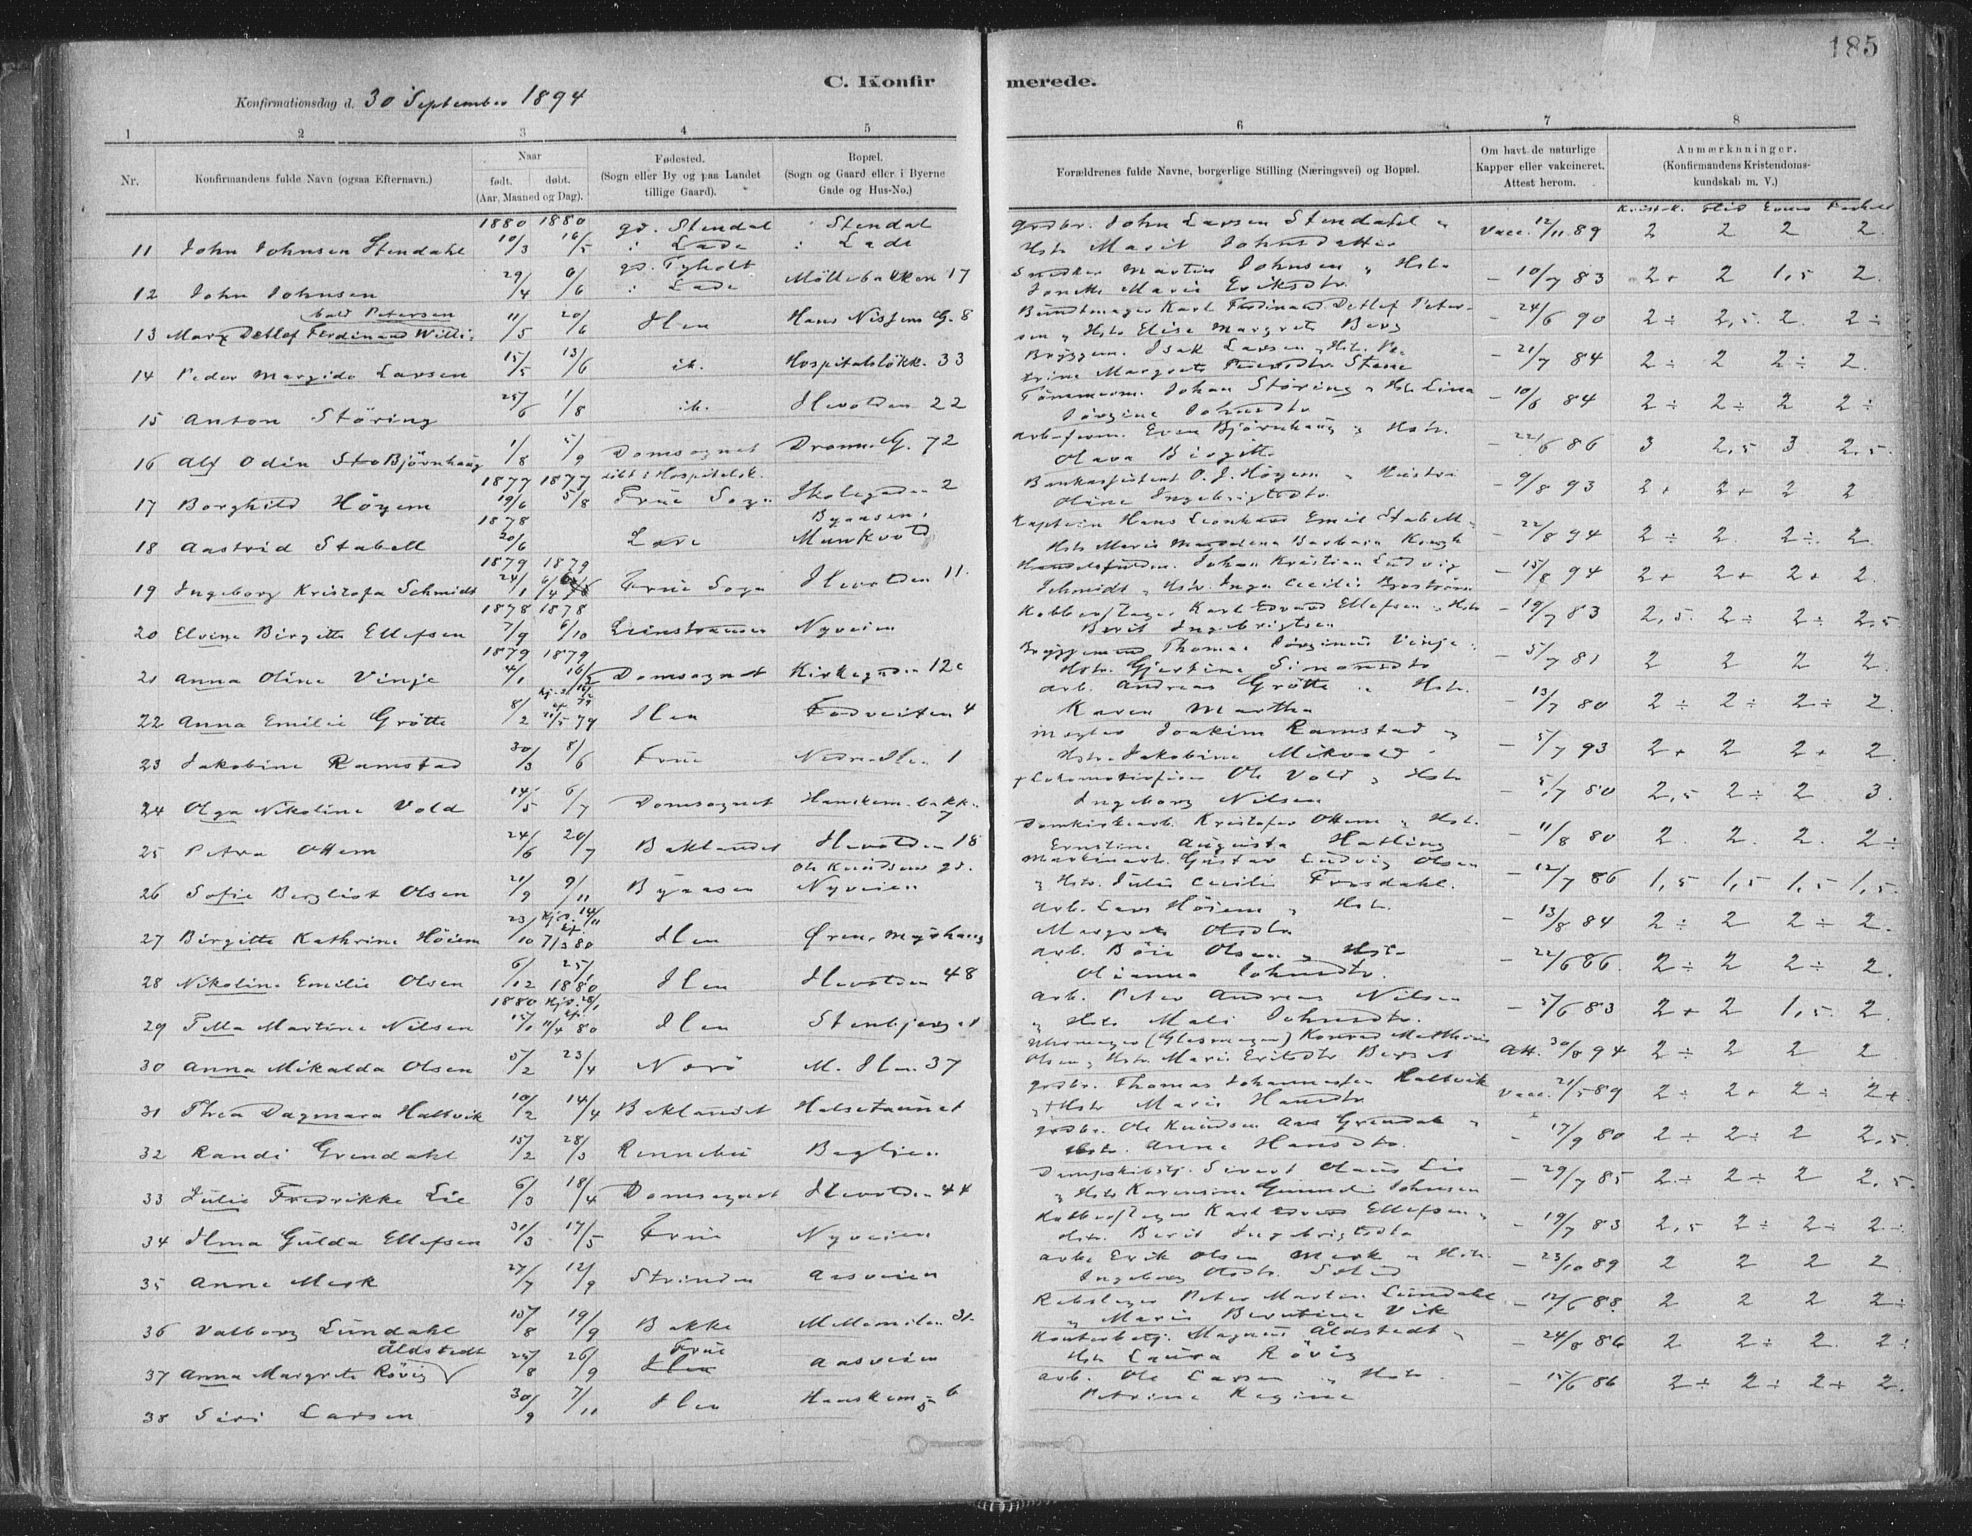 185
C. Konfirmerede.
Konfirmationsdag d. 30 September 1894
1 2 3 4 5 6 7 8
Nr.
Konfirmandens fulde Navn (ogsaa Efternavn.)
Naar
født. døbt.
(Aar, Maaned og Dag).
Fødested.
(Sogn eller By og paa Landet
tillige Gaard).
Bopæl.
(Sogn og Gaard eller i Byerne
Gade og Hus-No.)
Forældrenes fulde Navne, borgerlige Stilling (Næringsvei) og Bopæl.
Om havt de naturlige
Kapper eller vakcineret.
Attest herom.
Anmærkninger.
(Konfirmandens Kristendoms-
kundskab m. V.)
Kristek. Flid Evner Forhold
1880 1880 gd. Stendal Stendal grdbr. John Larsen Stendahl
11 John Johnsen Stendahl 10/3 16/5 i Lade i Lade Hstr Marit Johnsdatter Vacc. 12/11 89 2 2 2 2.
gd. Tyholt Snedker Martin Johnsen Hstr
12 John Johnsen 29/4 6/6 i Lade Möllebakken 17 Jonette Marie Eriksdtr. - 10/7 83 2+ 2 1,5 2.
kald Petersen Bundtmager Karl Ferdinand Detlef Peter-
13 Marx Detlef Ferdinand Willi: 11/5 20/6 Ilen Hans Nissens G. 8 sen Hstr Elise Margrete Berg - 24/6 90 2÷ 2,5. 2. 2÷
Bryggem. Isak Larsen Hstr. Pe-
14 Peder Margido Larsen 15/5 13/6 ib. Hospitalsløkk. 33 trine Margrete Stene - 21/7 84 2÷ 2 2÷ 2.
Tömmerm. Johan Störing Hstr Lina
15 Anton Störing 25/6 1/8 ib. Ilevolden 22 Jørgine Johnsdtr - 10/6 84 2÷ 2÷ 2 2÷
arb.form. Even Bjørnhaug Hstr.
16 Alf Odin Bjørnhaug 1/8 5/9 Domsognet Dronn. G. 72 Olava Birgitte - 22/6 86 3 2,5 3 2,5.
1877 1877 döbt i Hospitalsk. Bankassistent O. J. Höyem Hustru
17 Borghild Höyem 19/6 5/8 Frue Sogn Skolegaden 2 Oline Ingebrigtsdtr. - 9/8 93 2+ 2+ 2 2
1878 Byaasen, Kaptein Hans Leonhard Emil Stabell
18 Aastrid Stabell 20/6 Munkvold Hstr Marie Magdalena Barbara Krogh - 22/8 94 2÷ 2 2÷. 2.
1879 1879 Johan Kristian Ludvig
19 Ingeborg Kristofa Schmidt 24/1 6/4 Frue Sogn Ilevolden 11. Schmidt Hstr. Inga Cecilie - 15/8 94 2+ 2+ 2+ 2.
1878 1878 Kobberslager Karl Edvard Ellefsen Hstr
20 Elvine Birgitte Ellefsen 7/9 6/10 Leinstranden Nyveien Berit Ingebrigtsen - 19/7 83 2,5. 2÷ 2÷ 2,5
1879 1879 Bryggemand Thomas Jörginus Vinje
21 Anna Oline Vinje 4/1 16/2 Domsognet Kirkegaden 12c Hstr. Gjertine Simonsdtr - 5/7 81 2 2 2 2.
arb. Andreas Grötte Hstr.
22 Anna Emilie Grötte 8/2 Ilen Fodveiten 4 Karen Martha - 13/7 80 2÷ 2÷ 2÷ 2.
Joakim Ramstad
23 Jakobine Ramstad 30/3 8/6 Frue Nedre Ilen 1 Hstr. Jakobine Mikvold - 5/7 93 2+ 2 2+ 2.
Ole Vold Hstr
24 Olga Nikoline Vold 14/5 6/7 Domsognet Hanskem. bakk. 7 Ingeborg Nilsen - 5/7 80 2,5 2÷ 2 3.
Domkirkearb. Kristofer Ottem Hstr.
25 Petra Ottem 24/6 20/7 Baklandet Ilevolden 18 Ernstine Augusta Hatling - 11/8 80 2. 2. 2. 2÷
Ole Knudsens gd. Maskinarb. Gustav Ludvig Olsen
26 Sofie Bergliot Olsen 21/9 9/11 Byaasen Nyveien Hstr. Julie Cecilie Frosdahl. - 12/7 86 1,5 1,5 1,5 1,5.
arb. Lars Höiem Hstr.
27 Birgitte Kathrine Höiem 23/10 7/3 80 Ilen Øren, Myrhaug Margrete Olsdtr - 13/8 84 2÷ 2 2÷ 2.
arb. Böie Olsen Hstr
28 Nikoline Emilie Olsen 6/12 25/1 1880 Ilen Ilevolden 48 Olianna Johnsdtr. - 22/6 86. 2÷ 2 2÷ 2.
1880 arb. Peter Andreas Nilsen
29 Pella Martine Nilsen 15/1 11/4 80 Ilen Stenbjerget Hstr Mali Johnsdtr. - 5/6 83 2+ 2 1,5 2.
Uhrmager (Glasmager) Konrad Mathias
30 Anna Mikalda Olsen 5/2 23/4 Nærö M. Ilen 37 Olsen, Hstr. Marie Eriksdtr Berset Att. 30/8 94 2÷ 2 2 2
grdbr. Thomas Johannessen Haltvik
31 Thea Dagmara Haltvik 10/2 14/4 Baklandet Halsetaunet Hstr Marie Hansdtr Vacc. 21/5 89 2÷ 2+ 2÷ 2+.
grdbr. Ole Knudsen Aas Grendal
32 Randi Grendahl 15/2 28/3 Rennebu Baglien Hstr. Anne Hansdtr. - 17/9 80 2÷ 2÷ 2 2,5.
Dampskibsbtj. Sivert Olaus Lie
33 Julie Fredrikke Lie 6/3 18/4 Domsognet Ilevolden 44 Hstr Karensine Johnsen - 29/7 85 2.÷ 2÷ 2 2,5.
Kobberslager Karl Edvard Ellefsen
34 Ilma Gulda Ellefsen 31/3 17/5 Frue Nyveien Hstr. Berit Ingebrigtsdtr - 19/7 83 2,5 2÷ 2÷ 2÷
arb. Erik Olsen Merk Hstr.
35 Anne Merk 27/7 12/9 Strinden Aasveien Ingeborg Olsdtr. - 23/10 89 2 2 2 2.
Rebslager Peter Martin Lundahl
36 Valborg Lundahl 15/8 19/9 Bakke Mellemilen 31. Marie Berntine Vik - 12/6 88. 2 2 2 2÷
Åldstedt Frue Kontorbetj. Magnus Åldstedt
37 Anna Margrete Rövig 25/8 26/9 Ilen Aasveien Hstr Laura Rövig - 24/8 86 2 2÷ 2. 2÷
arb. Ole Larsen Hstr.
38 Siri Larsen 30/9 7/11 Ilen Hanskem. 6 Petrine Regine - 15/6 86 2÷ 2÷ 2+ 2.